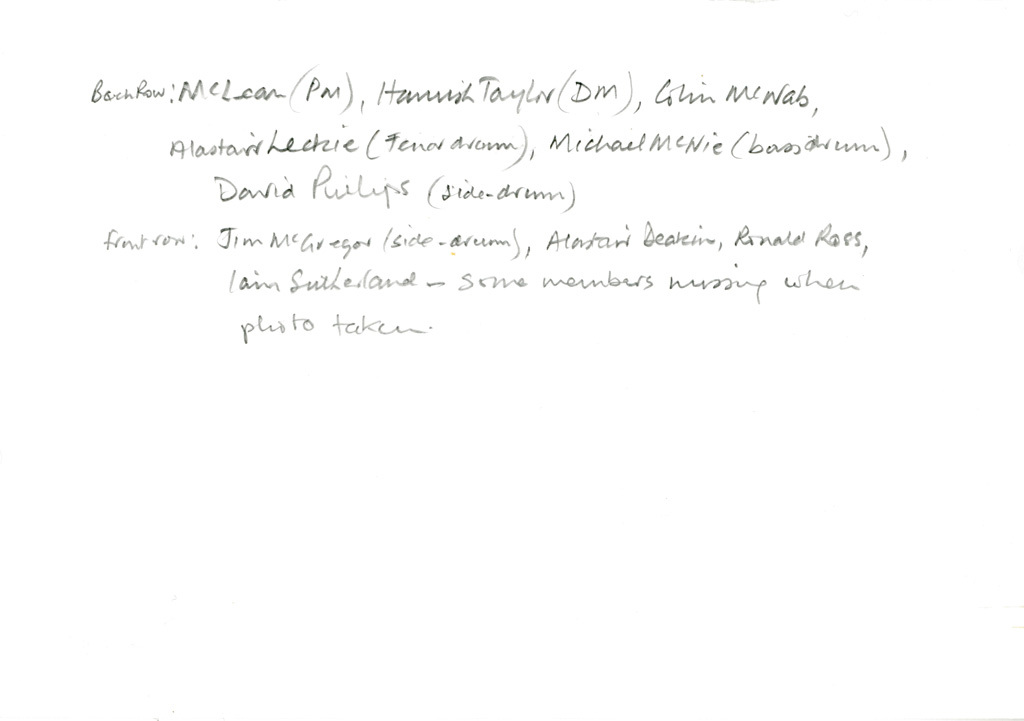 Back Row: McLean (PM), Hamish Taylor (DM), Colin McNab,
Alastair Leckie (Tenor drum), Michael McNie (bass drum),
David Philips (side-drum)
front row: Jim McGregor (side-drum), Alastair Deakins, Ronald Ross,
Iain Sutherland - some members missing when
photo taken.